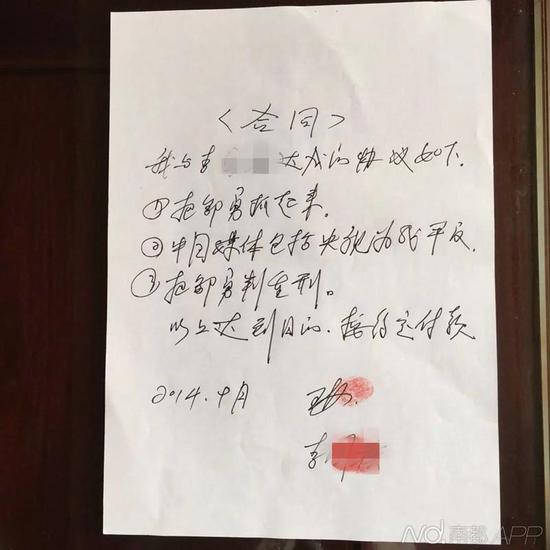 〈合同〉
我与李 达成的协议如下.
①把邹勇抓起来.
②中国媒体包括央视为我平反.
③把邹勇判重刑。
以上达到目的，按约定付款
2014.十月
李
南都APP